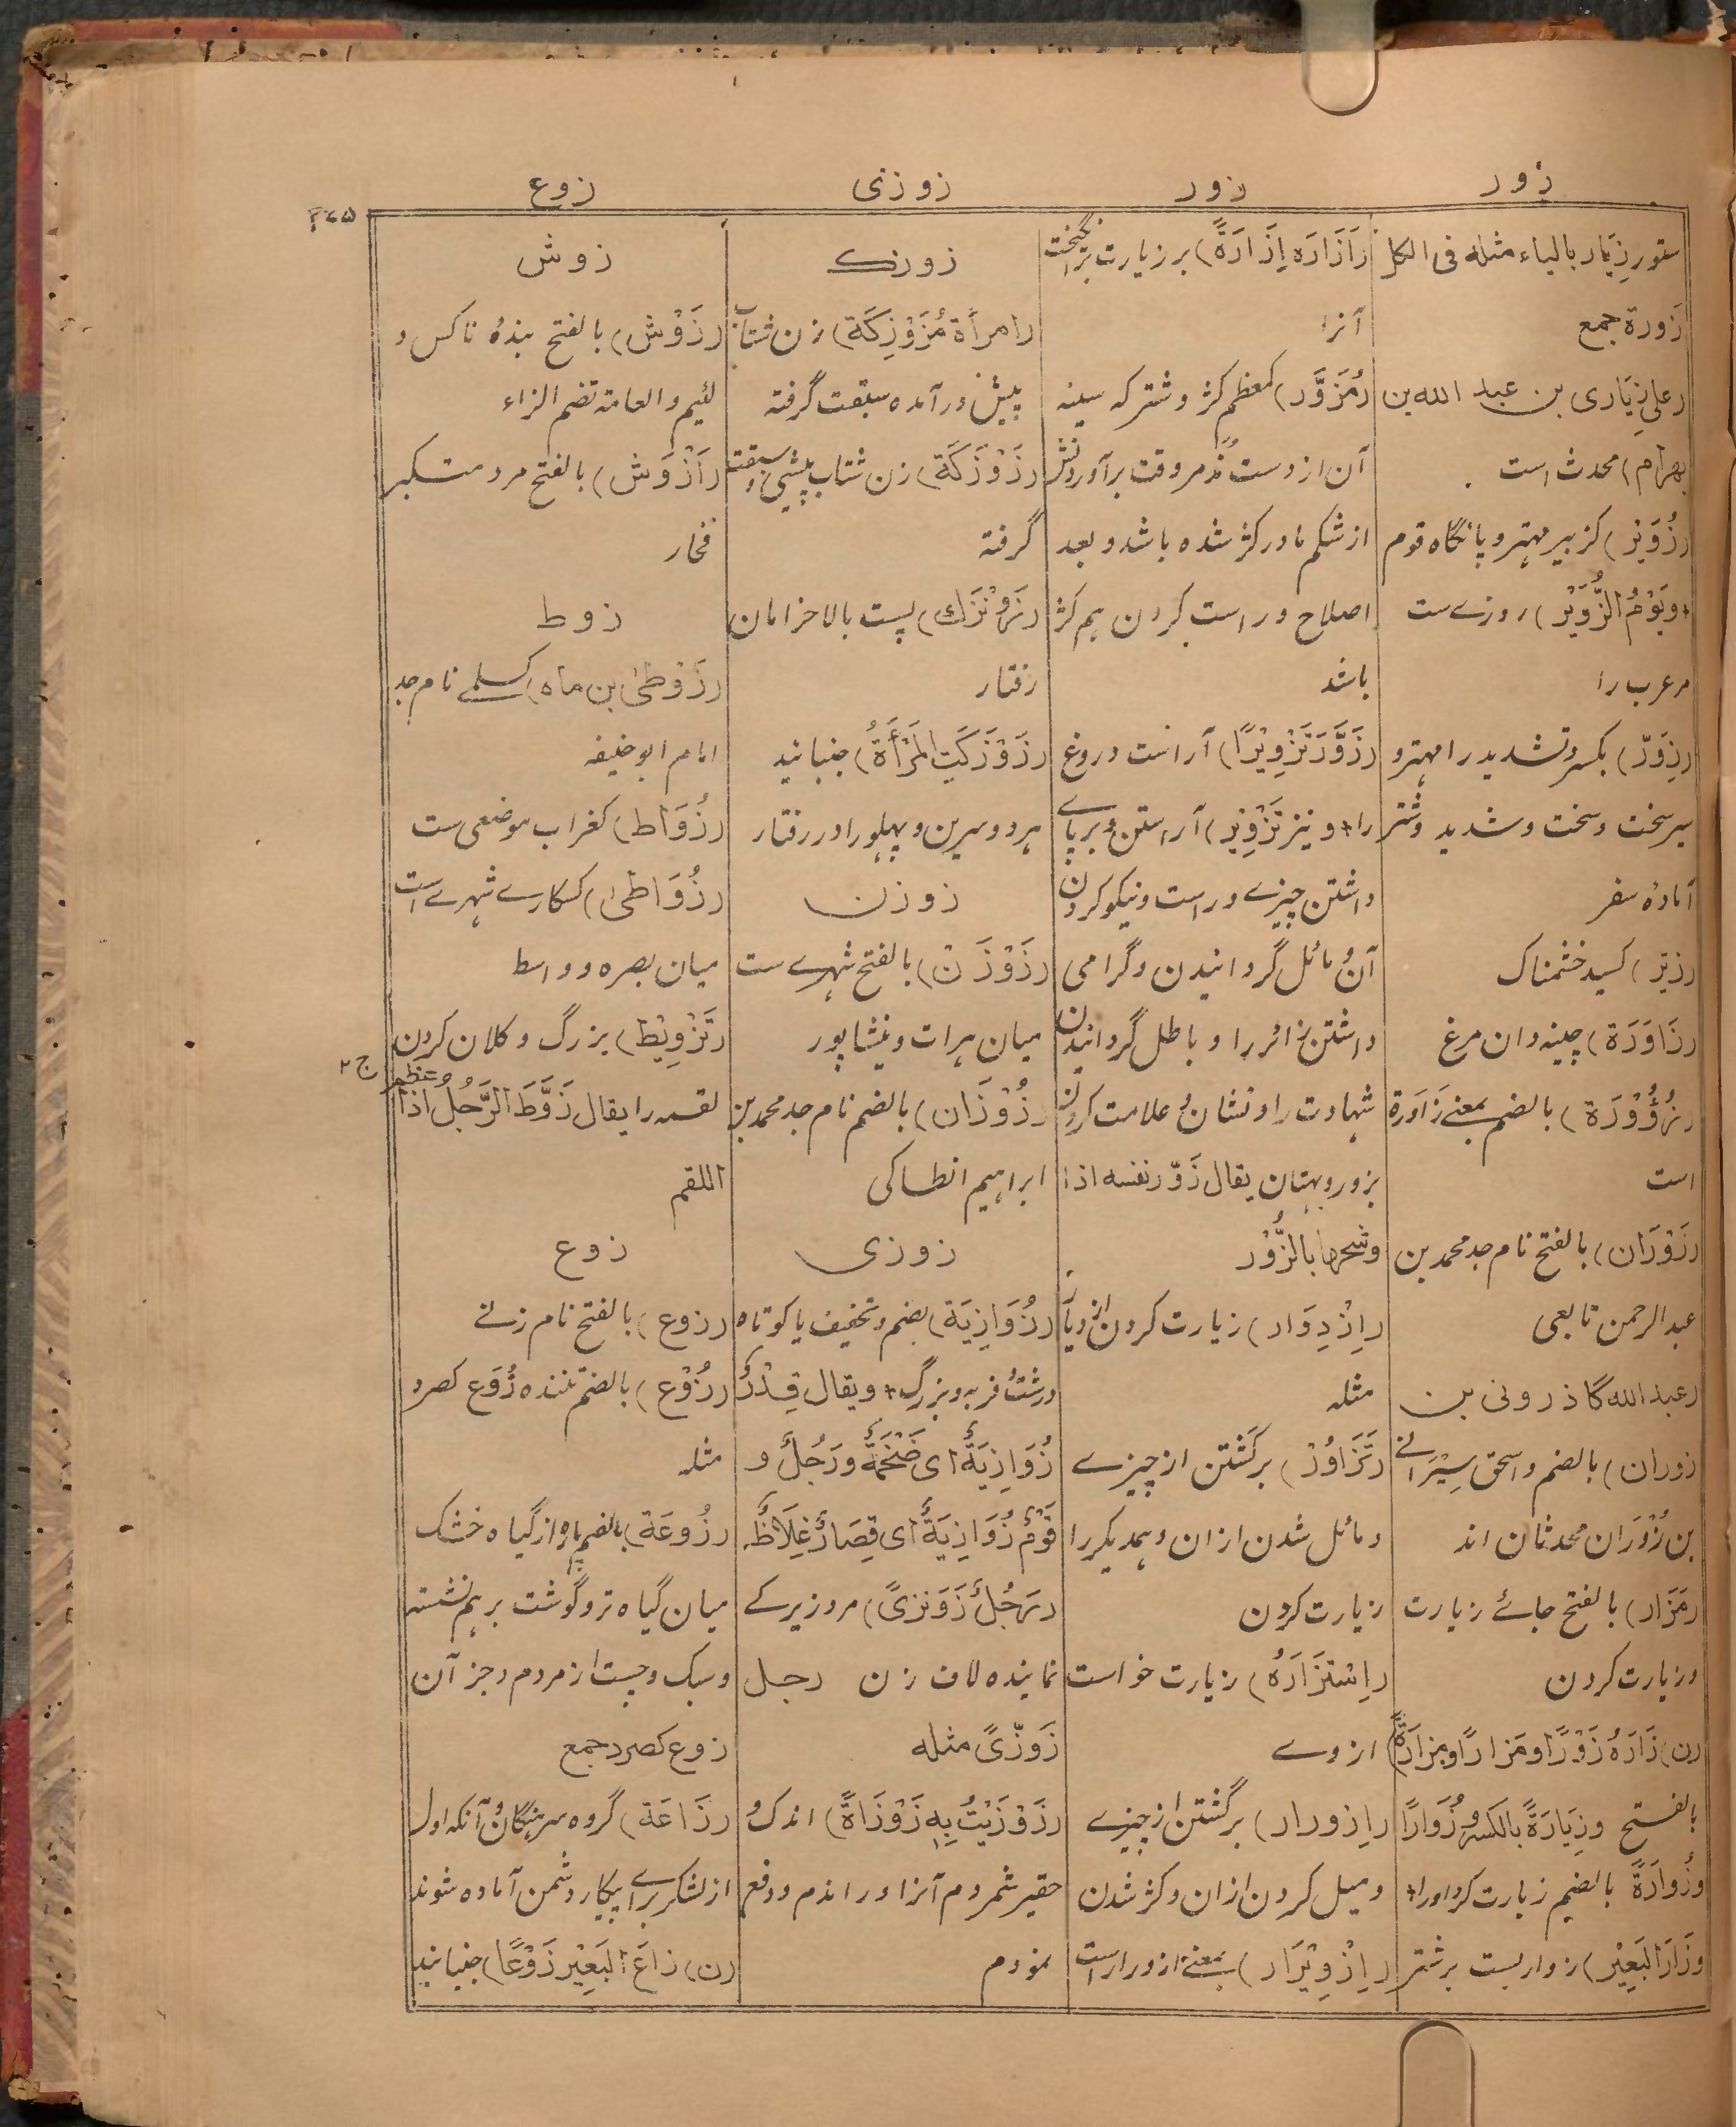 زور
زور
زوزنی
زوع
۴۷۵
ستور زِیَار بالیاء مثله فی الکل
زَورة جمع
(علی زِیَاری بن عبد الله بن
بهرام) محدث است
(زُوَیْر) کزبیر مهتر و پانگاه قوم
+ ویَوْمُ الزُّوَیْر) روزے ست
مر عرب را
(زِوَرّ) بکسر و تشدید را مهتر و
سیر سخت و سخت و شدید و شتر
آمادهٔ سفر
(زِیَر) کسید خشمناک
(زَاوَرَة) چینه دان مرغ
(زُؤْوْرَة) بالضم بمعنے زَاوَرة
است
(زَوْرَان) بالفتح نام جد محمد بن
عبد الرحمن تابعی
(عبد الله گاذرونی بن
زوران) بالضم و اسحق سِیْرَانے
بن زُوْرَان محدثان اند
(مَزَار) بالفتح جائے زیارت
و زیارت کردن
(ن) زَارَهُ زَوْرًا و مَزارًا و مزارَةً
بالفتح وزِیَارَةً بالکسر و زُوَارًا
وزُوارَةً بالضم زیارت کرد او را +
وزَارَ البَعِیْر) زوار بست بر شتر
(اَزَارَه اِزَارَةً) بر زیارت برانگیخت
آنرا
(مُزَوَّر) کمعظم کژ و شتر که سینه
آن از دست مذمر وقت برآوردنش
از شکم مادر کژ شده باشد و بعد
اصلاح و راست کردن هم کژ
باشد
(زَوَّرَ تَزْوِیْرًا) آراست دروغ
را + و نیز تَزْوِیْر) آراستن و برپاے
داشتن چیزے و راست و نیکو کردن
آن و مائل گردانیدن و گرامی
داشتن زائر را و باطل گردانیدن
شهادت را و نشان و علامت کردن
بزور و بهتان یقال زَوَّر نفسه اذا
وشحرها بالزُّوْر
(اِزْدِوَار) زیارت کردن
مثله
(تَزَاوُر) برگشتن از چیزے
و مائل شدن ازان و همدیگر را
زیارت کردن
(اِسْتَزَارَهُ) زیارت خواست
از وے
(اِزورار) برگشتن از چیزے
و میل کردن ازان و کژ شدن
(اِزْوِیْرَار) بمعنے ازورار است
زوزک
(امرأة مُزَوْزِکَة) زن شتاب
پیش در آمده سبقت گرفته
(زَوْزَکَة) زن شتاب پیشی و سبقت
گرفته
(زَوَنْزَك) پست بالا خرامان
رفتار
(زَوْزَکَتِ المَرْأَةُ) جنبانید
هر دو سرین و پهلو را در رفتار
زوزن
(زَوْزَنْ) بالفتح شهرے ست
میان هرات و نیشاپور
(زُوْزَان) بالضم نام جد محمد بن
ابراهیم انطاکی
زوزی
(زُوَازِیَة) بضم و تخفیف یا کوتاه
درشت و فربه و بزرگ + ویقال قِدْرٌ
زُوَازِیَةٌ ای ضَخْمَةٌ ورَجُلٌ و
قَوْمٌ زُوَازِیَةٌ ای قِصَارٌ غِلَاظٌ
(رَجُلٌ زَوَنْزیً) مرد زیرک
نماینده لاف زن رجل
زَوَزّیً مثله
(زَوْزَیْتُ بِهِ زَوْزَاةً) اندک و
حقیر شمردم آنرا و راندم و دفع
نمودم
زوش
(زَوْش) بالفتح بندهٔ ناکس و
لئیم والعامة تضم الزاء
(اَزْوَش) بالفتح مرد متکبر
فخار
زوط
(زَوْطیٰ بن ماه) کسلمے نام جد
امام ابو حنیفه
(زُوَاط) کغراب موضعی ست
(زُوَاطیٰ) کسکارے شهرے است
میان بصره و واسط
(تَزْوِیْط) بزرگ و کلان کردن
لقمه را یقال زَوَّطَ الرَّجُلُ اذا عظم
ج ۲
اللقم
زوع
(زوع) بالفتح نام زنے
(زُوْع) بالضم تننده زُوَع کصرد
مثله
(زُوعَة) بالضم پاره از گیاه خشک
میان گیاه تر و گوشت برهم نشسته
و سبک و چست از مردم و جز آن
زوع کصرد جمع
(زَاعَة) گروه سرهنگان و آنکه اول
از لشکر براے پیکار دشمن آماده شوند
(ن) زاعَ البَعِیْر زَوْعًا) جنبانید